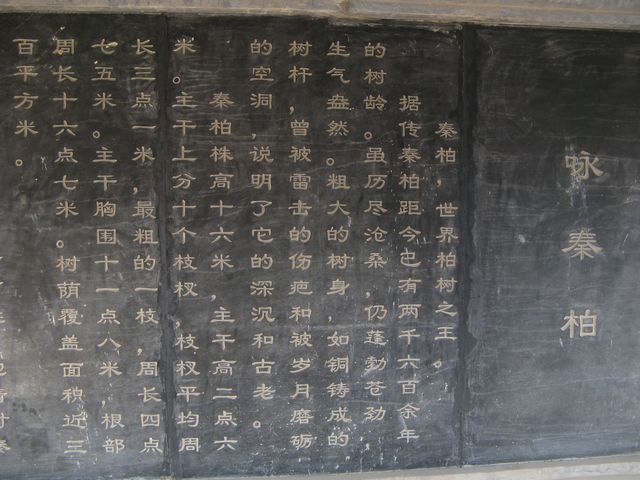 咏秦柏
秦柏，世界柏树之王。
据传秦柏距今已有两千六百余年
的树龄。虽历尽沧桑，仍蓬勃苍劲
生气盎然。粗大的树身，如铜铸成的
树杆，曾被雷击的伤疤和被岁月磨砺
的空洞，说明了它的深沉和古老。
秦柏株高十六米，主干高二点六
米。主干上分十个枝杈，枝杈平均周
长三点一米，最粗的一枝，周长四点
七五米。主干胸围十一点八米，根部
周长十六点七米。树荫覆盖面积近三
百平方米。